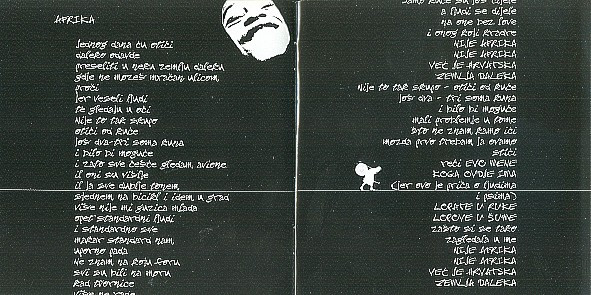 AFRIKA
Jednog dana ću otići
daleko odavde
preseliti u neku zemlju daleku
gdje ne možeš mračan ulicom
proći
Jer veseli ljudi
te gledaju u oči
Nije to tak skupo
otići od kuće
Još dva-tri soma kuna
i bilo bi moguće
i zato sve češće gledam avione
il oni su višlje
il ja sve dublje tonem
sjednem na bicikl i idem u grad
više nije mi guzica mlada
opet standardni ljudi
i standardno sve
makar standard nam
uporno pada
Ne znam na koju foru
svi su bili na moru
kad tvornice
više ne rade
samo kuće su još bijele
a ljudi se dijele
na one bez love
i onog koji krade
NIJE AFRIKA
NIJE AFRIKA
VEĆ JE HRVATSKA
ZEMLJA DALEKA
Nije to tak skupo - otići od kuće
Još dva - tri soma kuna
i bilo bi moguće
mali problemie u tome
što ne znam kamo ići
možda prvo trebam ja ovamo
stići
reći EVO MENE
KOGA OVDJE IMA
(jer ovo je priča o ljudima
i psima)
LOPATE U RUKE
LOPOVE U ŠUME
zašto svi se tako
zagledali u me
NIJE AFRIKA
NIJE AFRIKA
VEĆ JE HRVATSKA
ZEMLJA DALEKA